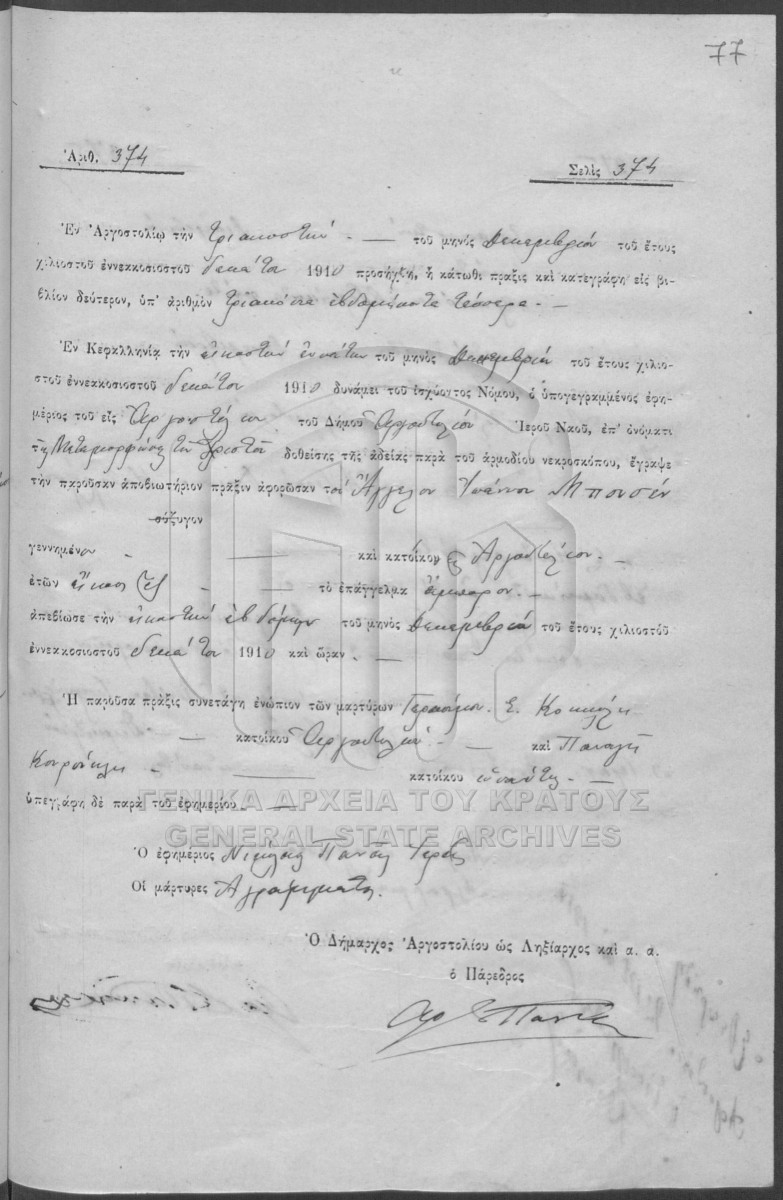 77
Ἀριθ. 374
Σελὶς 374
Ἐν Ἀργοστολίῳ τὴν τριακοστὴν τοῦ μηνὸς Δεκεμβρίου τοῦ ἔτους
χιλιοστοῦ ἐννεακοσιοστοῦ δεκάτου 1910 προσήχθη, ἡ κάτωθι πρᾶξις καὶ κατεγράφη εἰς βι-
βλίον δεύτερον, ὑπ' ἀριθμὸν τριακόσια ἑβδομήκοντα τέσσερα. —
Ἐν Κεφαλληνίᾳ τὴν εἰκοστὴν ἐννάτην τοῦ μηνὸς Δεκεμβρίου τοῦ ἔτους χιλιο-
στοῦ ἐννεακοσιοστοῦ δεκάτου 1910 δυνάμει τοῦ ἰσχύοντος Νόμου, ὁ ὑπογεγραμμένος ἐφη-
μέριος τοῦ εἰς Ἀργοστόλιον τοῦ Δήμου Ἀργοστολίου Ἱεροῦ Ναοῦ, ἐπ' ὀνόματι
τῆς Μεταμορφώσ. τοῦ Χριστοῦ δοθείσης τῆς ἀδείας παρὰ τοῦ ἁρμοδίου νεκροσκόπου, ἔγραψε
τὴν παροῦσαν ἀποβιωτήριον πρᾶξιν ἀφορῶσαν τὸν Ἄγγελον Ἰωάννου
σύζυγον
γεννημένον — καὶ κάτοικον εἰς Ἀργοστόλιον. —
ἐτῶν εἴκοσι ἓξ — τὸ ἐπάγγελμα ἔμπορον. —
ἀπεβίωσε τὴν εἰκοστὴν ἑβδόμην τοῦ μηνὸς Δεκεμβρίου τοῦ ἔτους χιλιοστοῦ
ἐννεακοσιοστοῦ δεκάτου 1910 καὶ ὥραν. —
Ἡ παροῦσα πρᾶξις συνετάγη ἐνώπιον τῶν μαρτύρων Γερασίμου Σ.
— κατοίκου Ἀργοστολίου — καὶ Παναγῆ
κατοίκου —
ὑπεγράφη δὲ παρὰ τοῦ ἐφημερίου. —
ΓΕΝΙΚΑ ΑΡΧΕΙΑ ΤΟΥ ΚΡΑΤΟΥΣ
GENERAL STATE ARCHIVES
Ὁ ἐφημέριος Νικόλαος Ἱερεὺς
Οἱ μάρτυρες Ἀγράμματοι.
Ὁ Δήμαρχος Ἀργοστολίου ὡς Ληξίαρχος καὶ α. α.
ὁ Πάρεδρος